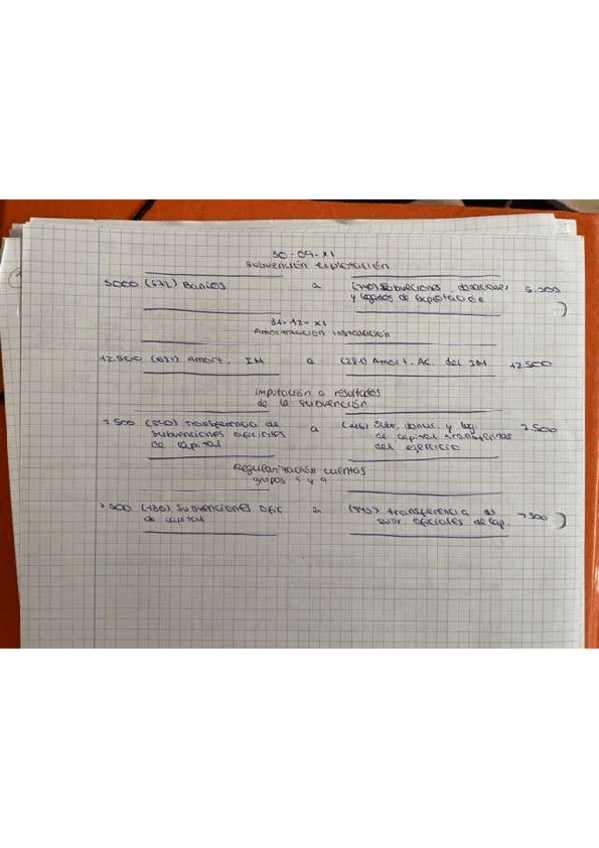 30-09-X1
Subvención explotación
5000 (572) Bancos a (740) Subvenciones, donaciones 5.000
y legados de explotación
31-12-X1
Amortización instalación
12.500 (681) Amort. IM a (281) Amort. AC. del IM 12500
Imputación a resultados
de la subvención
7500 (840) Transferencia de a (746) Subv. donac. y leg. 7500
subvenciones oficiales de capital transferidas
de capital del ejercicio
Regularización cuentas
grupos 8 y 9
7500 (130) Subvenciones ofic a (840) Transferencia de 7500
de capital subv. oficiales de cap.